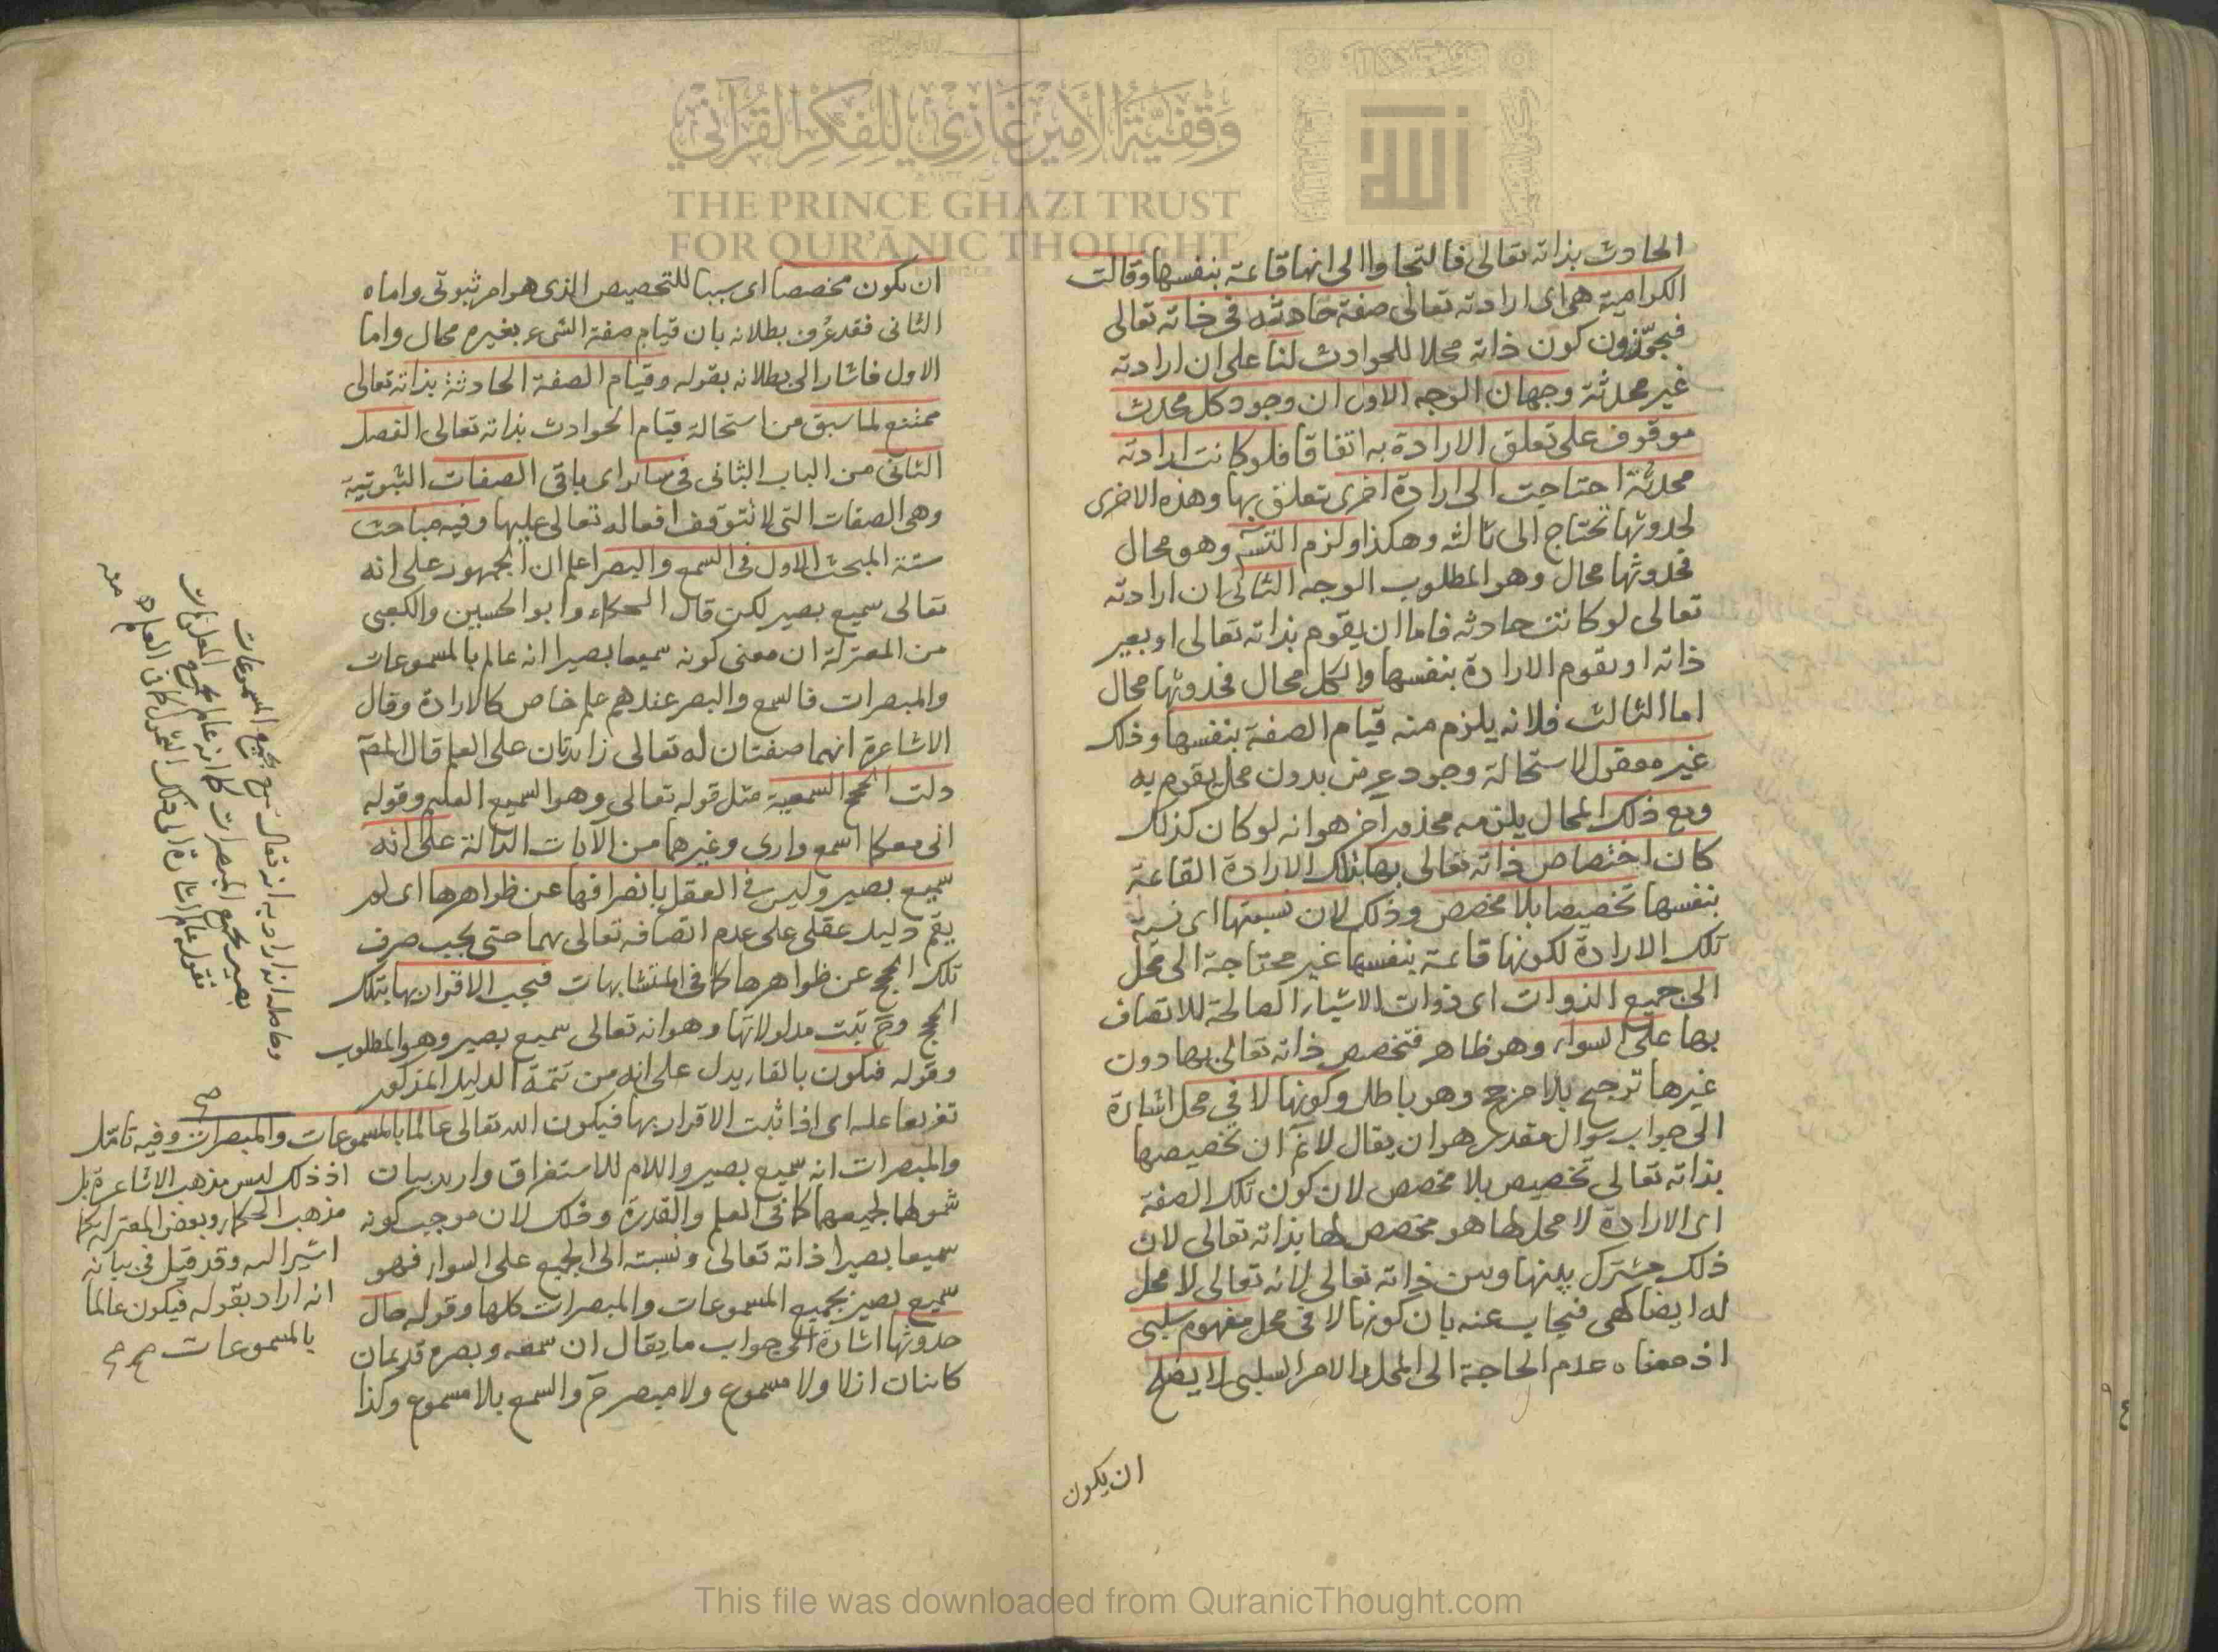 الحادث بذاته تعالى فالتجاوا الى انها قائمة بنفسها وقالت
الكرامية هى اى ارادته تعالى صفة حادثة فى ذاته تعالى
فيجوّزون كون ذاته محلا للحوادث لنا على ان ارادته
غير محدثة وجهان الوجه الاول ان وجود كل محدث
موقوف على تعلق الارادة به اتفاقا فلو كانت ارادته
محدثة احتاجت الى ارادة اخرى تعلق بها وهذه الاخرى
لحدوثها تحتاج الى ثالثه وهكذا ولزم التسّ وهو محال
فحدوثها محال وهو المطلوب الوجه الثانى ان ارادته
تعالى لو كانت حادثه فاما ان يقوم بذاته تعالى او بغير
ذاته او يقوم الارادة بنفسها والكل محال فحدوثها محال
اما الثالث فلانه يلزم منه قيام الصفة بنفسها وذلك
غير معقول لاستحالة وجود عرض بدون محل يقوم به
ومع ذلك المحال يلزمه محذور آخر هو انه لو كان كذلك
كان اختصاص ذاته تعالى بها بتلك الارادة القائمة
بنفسها تخصيصا بلا مخصص وذلك لان نسبتها اى نسبة
تلك الارادة لكونها قائمة بنفسها غير محتاجة الى محل
الى جميع الذوات اى ذوات الاشياء الصالحة للاتصاف
بها على السواء وهو ظاهر فتخصص ذاته تعالى بها دون
غيرها ترجيح بلا مرجح وهو باطل وكونها لا فى محل اشارة
الى جواب سوال مقدر هو ان يقال لا نم ان تخصيصها
بذاته تعالى تخصيص بلا مخصص لان كون تلك الصفة
اى الارادة لا محل لها هو مخصص لها بذاته تعالى لان
ذلك مشترك بينها وبين ذاته تعالى لانه تعالى لا محل
له ايضا كهى فيجاب عنه بان كونها لا فى محل مفهوم سلبى
اذ معناه عدم الحاجة الى المحل والامر السلبى لا يصلح
ان يكون
ان يكون مخصصا اى سببا للتخصيص الذى هو امر ثبوتى واما
الثانى فقد عُرف بطلانه بان قيام صفة الشىء بغيره محال واما
الاول فاشار الى بطلانه بقوله وقيام الصفة الحادثة بذاته تعالى
ممتنع لما سبق من استحالة قيام الحوادث بذاته تعالى الفصل
الثانى من الباب الثانى فى سائر اى باقى الصفات الثبوتية
وهى الصفات التى لا تتوقف افعاله تعالى عليها وفيه مباحث
ستة المبحث الاول فى السمع والبصر اعلم ان الجمهور على انه
تعالى سميع بصير لكن قال الحكاء وابو الحسين والكعبى
من المعتزلة ان معنى كونه سميعا بصيرا انه عالم بالمسموعات
والمبصرات فالسمع والبصر عندهم علم خاص كالارادة وقال
الاشاعرة انهما صفتان له تعالى زائدتان على العلم قال المصّ
دلت الحجج السمعية مثل قوله تعالى وهو السميع العليم وقوله
انى معكما اسمع وارى وغيرهما من الآيات الدالة على انه
سميع بصير وليس فى العقل بانصرافها عن ظواهرها اى لم
يقم دليل عقلى على عدم اتصافه تعالى بهما حتى يجب صرف
تلك الحجج عن ظواهرها كما فى المتشابهات فيجب الاقرار بها بتلك
الحجج وح ثبت مدلولاتها وهو انه تعالى سميع بصير وهو المطلوب
وقوله فيكون بالفاء يدل على انه من تتمة الدليل المذكور
تفريعا عليه اى اذا ثبت الاقرار بها فيكون الله تعالى عالما بالمسموعات والمبصرات وفيه تامّل
والمبصرات انه سميع بصير واللام للاستغراق واريد بيان
شمولهما لجميعهما كما فى العلم والقدرة وذلك لان موجب كونه
سميعا بصيرا ذاته تعالى ونسبته الى الجميع على السواء فهو
سميع بصير بجميع المسموعات والمبصرات كلها وقوله حال
حدوثها اشارة الى جواب ما يقال ان سمعه وبصره قديمان
كائنان ازلا ولا مسموع ولا مبصر ح والسمع بلا مسموع وكذا
اذ ذلك ليس مذهب الاشاعرة بل
مذهب الحكماء وبعض المعتزلة كما
اشير اليه وقد قيل فى بيانه
انه اراد بقوله فيكون عالما
بالمسموعات صح صح
وحاصله انه اراد به انه تعالى سميع بجميع المسموعات
بصير بجميع المبصرات كما انه عالم بجميع المعلومات
فقوله عالم اشارة الى ذلك الشمول كما فى العلم
منه
وقفية الأمير غازي للفكر القرآني
THE PRINCE GHAZI TRUST
FOR QUR'ĀNIC THOUGHT
This file was downloaded from QuranicThought.com